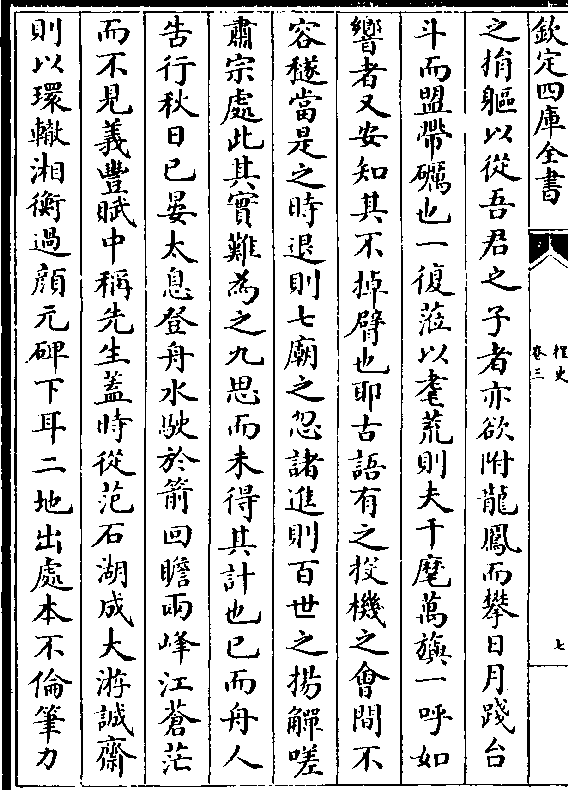 欽定四庫全書
桯史
卷三
七
之捐軀以從吾君之子者亦欲附龍鳳而攀日月踐台
斗而盟帶礪也一復蒞以耄荒則夫千麾萬旟一呼如
響者又安知其不掉臂也耶古語有之投機之會間不
容穟當是之時退則七廟之忽諸進則百世之揚觶嗟
肅宗處此其實難為之九思而未得其計也已而舟人
告行秋日已晏太息登舟水駛於箭回瞻兩峰江蒼茫
而不見義豐賦中稱先生蓋時從范石湖成大游誠齋
則以環轍湘衡過顔元碑下耳二地出處本不倫筆力